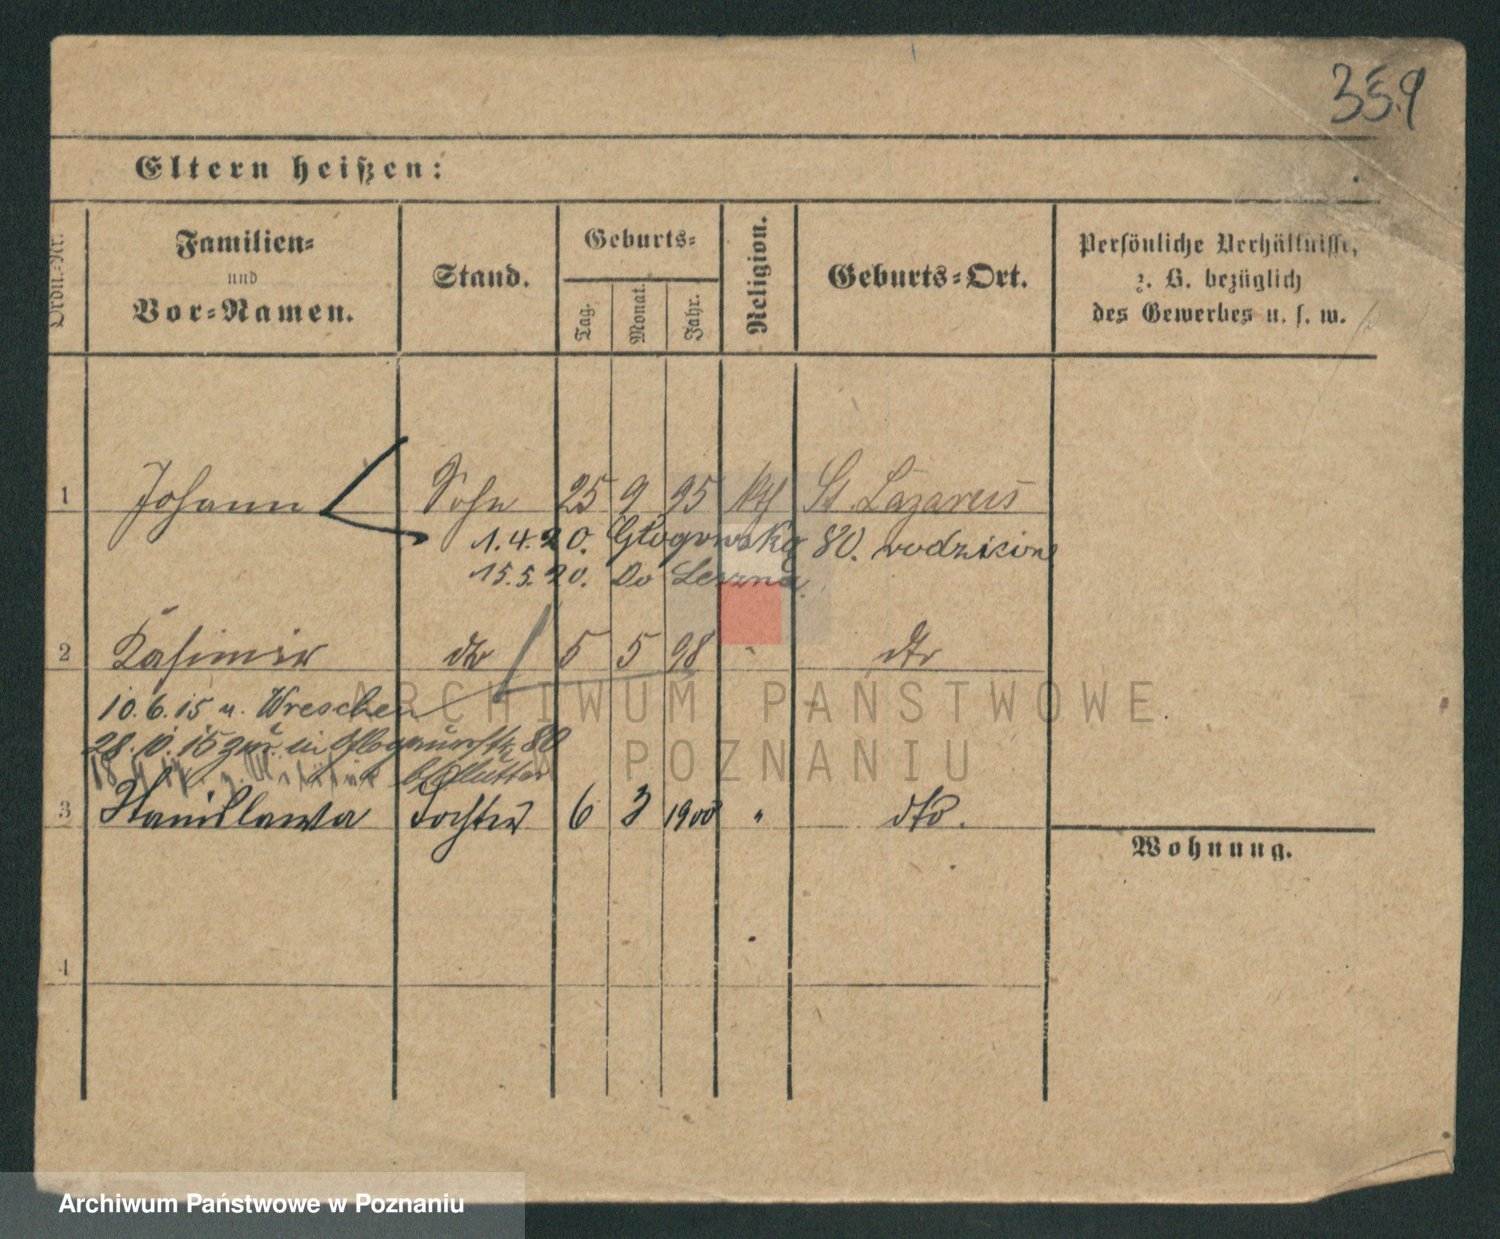 359
Eltern heißen:
Ordn.-Nr.
Familien-
und
Vor-Namen.
Stand.
Geburts-
Tag.
Monat.
Jahr.
Religion.
Geburts-Ort.
Persönliche Verhältnisse,
z. B. bezüglich
des Gewerbes u. s. w.
1 Johann Sohn 25 9 95 kth St Lazarus
1.4.20. Głogowska 80. rodzicóne
15.5.20. Do Leszna.
2 Kasimir dto 5 5 98 " dto
10.6.15 n. Wreschen
28.10.15 zur. in Glogauerstr 80
b/Mutter
3 Stanislawa Tochter 6 3 1900 " dto.
Wohnung.
4
ARCHIWUM PAŃSTWOWE
W POZNANIU
Archiwum Państwowe w Poznaniu